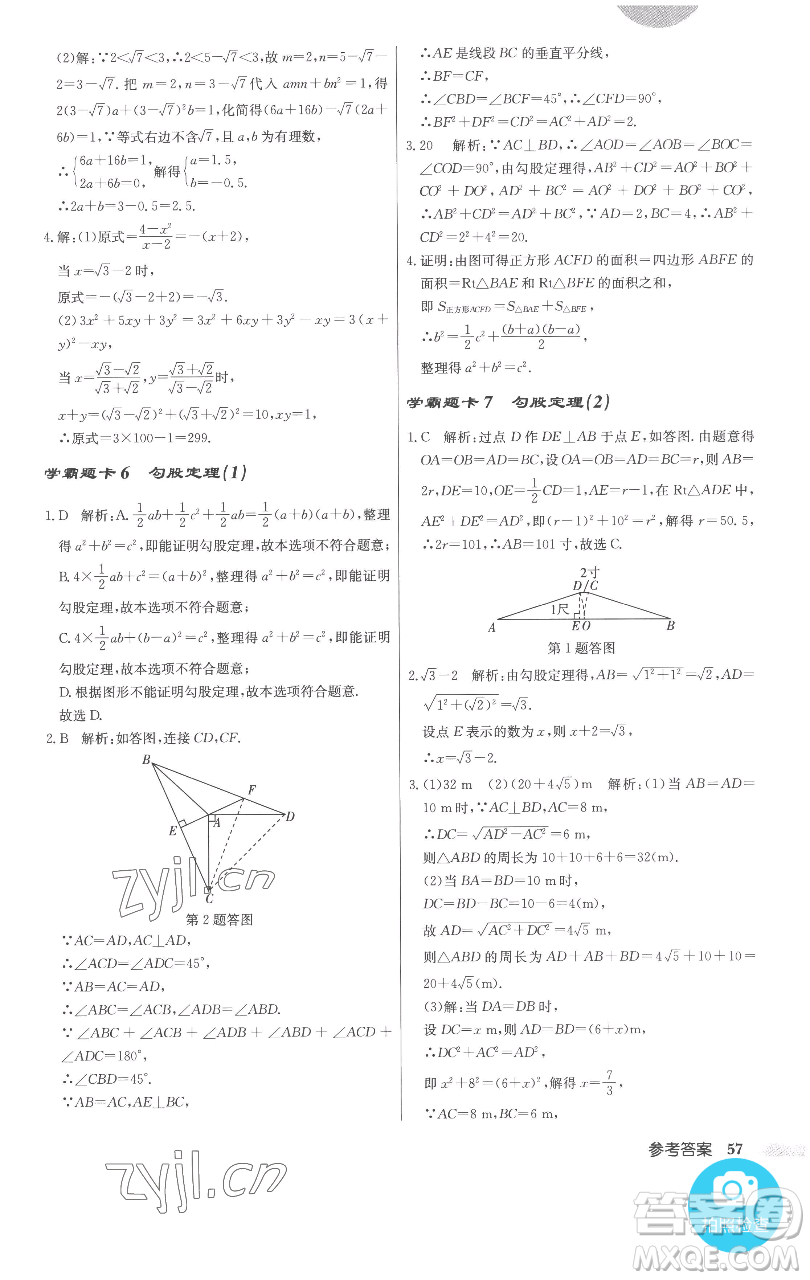 (2)解:∵2<√7<3,∴2<5-√7<3,故m=2,n=5-√7-
2=3-√7. 把m=2,n=3-√7代入amn+bn²=1,得
2(3-√7)a+(3-√7)²b=1,化简得(6a+16b)-√7(2a+
6b)=1,∵等式右边不含√7,且a,b为有理数,
∴{6a+16b=1, 2a+6b=0, 解得{a=1.5, b=-0.5.
∴2a+b=3-0.5=2.5.
4.解:(1)原式=(4-x²)/(x-2)=-(x+2),
当x=√3-2时,
原式=-(√3-2+2)=-√3.
(2)3x²+5xy+3y²=3x²+6xy+3y²-xy=3(x+
y)²-xy,
当x=(√3-√2)/(√3+√2),y=(√3+√2)/(√3-√2)时,
x+y=(√3-√2)²+(√3+√2)²=10,xy=1,
∴原式=3×100-1=299.
学霸题卡6 勾股定理(1)
1.D 解析:A.1/2ab+1/2c²+1/2ab=1/2(a+b)(a+b),整理
得a²+b²=c²,即能证明勾股定理,故本选项不符合题意;
B.4×1/2ab+c²=(a+b)²,整理得a²+b²=c²,即能证明
勾股定理,故本选项不符合题意;
C.4×1/2ab+(b-a)²=c²,整理得a²+b²=c²,即能证明
勾股定理,故本选项不符合题意;
D.根据图形不能证明勾股定理,故本选项符合题意.
故选D.
2.B 解析:如答图,连接CD,CF.
B
F
D
E
A
C
第2题答图
∵AC=AD,AC⊥AD,
∴∠ACD=∠ADC=45°,
∵AB=AC=AD,
∴∠ABC=∠ACB,∠ADB=∠ABD.
∵∠ABC+∠ACB+∠ADB+∠ABD+∠ACD+
∠ADC=180°,
∴∠CBD=45°.
∵AB=AC,AE⊥BC,
∴AE是线段BC的垂直平分线,
∴BF=CF,
∴∠CBD=∠BCF=45°,∴∠CFD=90°,
∴BF²+DF²=CD²=AC²+AD²=2.
3.20 解析:∵AC⊥BD,∴∠AOD=∠AOB=∠BOC=
∠COD=90°,由勾股定理,得AB²+CD²=AO²+BO²+
CO²+DO²,AD²+BC²=AO²+DO²+BO²+CO²,
∴AB²+CD²=AD²+BC².∵AD=2,BC=4,
∴AB²+CD²=2²+4²=20.
4.证明:由图可得正方形ACFD的面积=四边形ABFE的
面积=Rt△BAE和Rt△BFE的面积之和,
即S正方形ACFD=S△BAE+S△BFE,
∴b²=1/2c²+(b+a)(b-a)/2,
整理得a²+b²=c².
学霸题卡7 勾股定理(2)
1.C 解析:过点D作DE⊥AB于点E,如答图.由题意得
OA=OB=AD=BC,设OA=OB=AD=BC=r,则AB=
2r,DE=10,OE=1/2CD=1,AE=r-1,在Rt△ADE中,
AE²+DE²=AD²,即(r-1)²+10²=r²,解得r=50.5,
∴2r=101,∴AB=101寸,故选C.
2寸
D/C
1尺
A EO B
第1题答图
2.√3-2 解析:由勾股定理,得AB=√(1²+1²)=√2,AD=
√(1²+(√2)²)=√3.
设点E表示的数为x,则x+2=√3,
∴x=√3-2.
3.(1)32 m (2)(20+4√5)m 解析:(1)当AB=AD=
10 m时,∵AC⊥BD,AC=8 m,
∴DC=√(AD²-AC²)=6 m,
则△ABD的周长为10+10+6+6=32(m).
(2)当BA=BD=10 m时,
DC=BD-BC=10-6=4(m),
故AD=√(AC²+DC²)=4√5(m),
则△ABD的周长为AD+AB+BD=10+4√5+10=
20+4√5(m).
(3)解:当DA=DB时,
设DC=x m,则AD=BD=(6+x)m.
∴DC²+AC²=AD²,
即x²+8²=(6+x)²,解得x=7/3,
∵AC=8 m,BC=6 m,
参考答案 57
zyjl.cn
zyjl.cn
拍照检查
答案卷
MXQE.COM